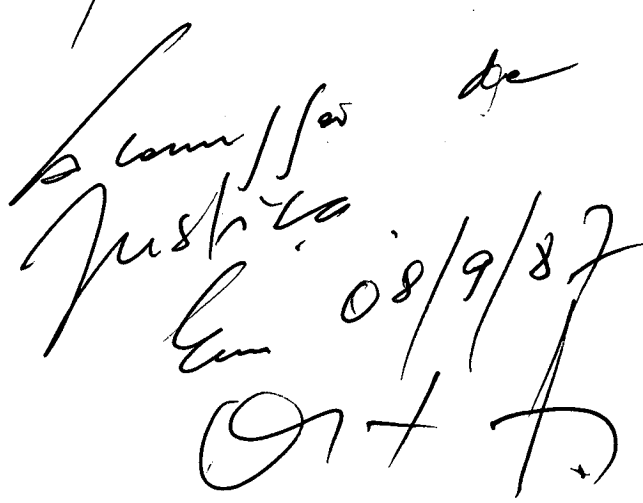 à Comissão de
Justiça
Em 08/9/87